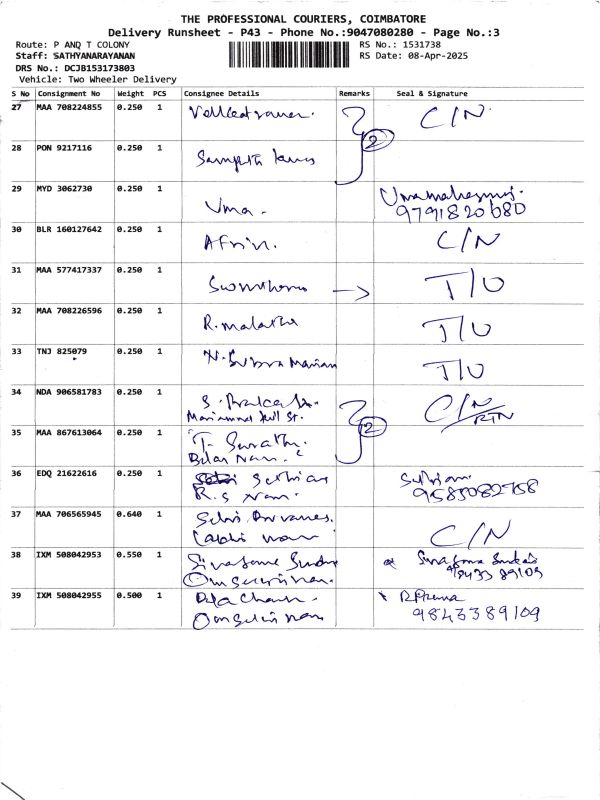 THE PROFESSIONAL COURIERS, COIMBATORE
Delivery Runsheet - P43 - Phone No.:9047080280 - Page No.:3
Route: P ANQ T COLONY
RS No.: 1531738
Staff: SATHYANARAYANAN
RS Date: 08-Apr-2025
DRS No.: DCJB153173803
Vehicle: Two Wheeler Delivery
S No Consignment No Weight PCS Consignee Details Remarks Seal & Signature
27 MAA 708224855 0.250 1 C/N
2
28 PON 9217116 0.250 1 Sampath
29 MYD 3062730 0.250 1 Uma. Umamaheswari.
9791820680
30 BLR 160127642 0.250 1 Afrin. C/N
31 MAA 577417337 0.250 1 T/U
32 MAA 708226596 0.250 1 R. Malatha T/U
33 TNJ 825079 0.250 1 N. Subra Maniam T/U
34 NDA 906581783 0.250 1 S. C/N
Mariammal St. RTN
2
35 MAA 867613064 0.250 1 T.
36 EDQ 21622616 0.250 1
R.S Nam. 9585082758
37 MAA 706565945 0.640 1 Selvi C/N
38 IXM 508042953 0.550 1
9843389109
39 IXM 508042955 0.500 1 R Prema
9843389109